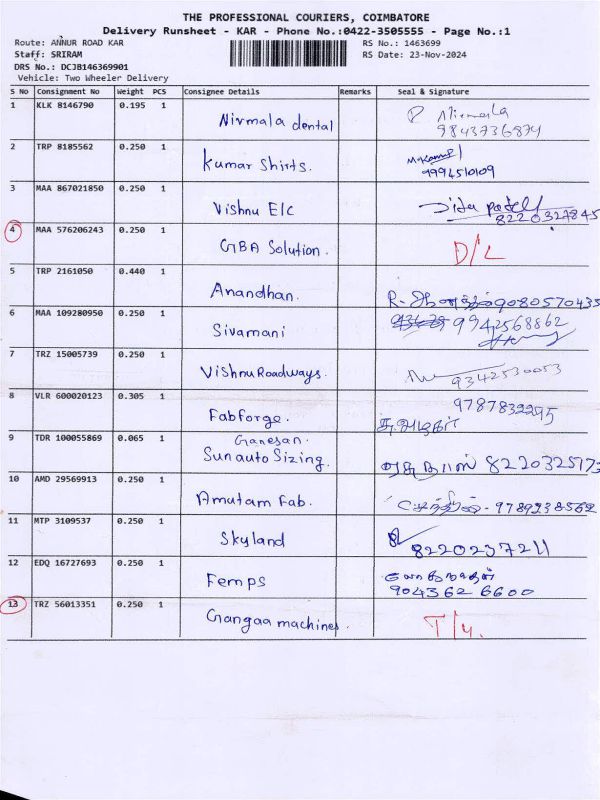 THE PROFESSIONAL COURIERS, COIMBATORE
Delivery Runsheet - KAR - Phone No.:0422-3505555 - Page No.:1
Route: ANNUR ROAD KAR RS No.: 1463699
Staff: SRIRAM RS Date: 23-Nov-2024
DRS No.: DCJB146369901
Vehicle: Two Wheeler Delivery
S No Consignment No Weight PCS Consignee Details Remarks Seal & Signature
1 KLK 8146790 0.195 1 Nirmala dental Nirmala
9843736874
2 TRP 8185562 0.250 1 Kumar Shirts.
9994510109
3 MAA 867021850 0.250 1 Vishnu E|C Jitu patel
8220327845
4 MAA 576206243 0.250 1 GBA Solution. D/L
5 TRP 2161050 0.440 1 Anandhan. 9080570435
6 MAA 109280950 0.250 1 Sivamani 9942568862
7 TRZ 15005739 0.250 1 Vishnu Roadways. 9342530053
8 VLR 600020123 0.305 1 Fabforge. 9787832295
9 TDR 100055869 0.065 1 Ganesan.
Sunauto Sizing. 8220325173
10 AMD 29569913 0.250 1 Amutam Fab. 9789238562
11 MTP 3109537 0.250 1 Skyland 8220237211
12 EDQ 16727693 0.250 1 Femps
9043626600
13 TRZ 56013351 0.250 1 Gangaa machines.